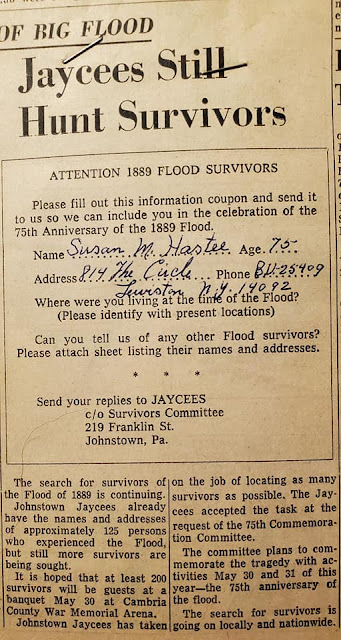 OF BIG FLOOD
Jaycees Still
Hunt Survivors
ATTENTION 1889 FLOOD SURVIVORS
Please fill out this information coupon and send it
to us so we can include you in the celebration of the
75th Anniversary of the 1889 Flood.
Name Susan M. Hastee Age 75
Address 814 The Circle Phone BU-25409
Lewiston N.Y. 14092
Where were you living at the time of the Flood?
(Please identify with present locations)
Can you tell us of any other Flood survivors?
Please attach sheet listing their names and addresses.
* * *
Send your replies to JAYCEES
c/o Survivors Committee
219 Franklin St.
Johnstown, Pa.
The search for survivors of
the Flood of 1889 is continuing.
Johnstown Jaycees already
have the names and addresses
of approximately 125 persons
who experienced the Flood,
but still more survivors are
being sought.
It is hoped that at least 200
survivors will be guests at a
banquet May 30 at Cambria
County War Memorial Arena.
Johnstown Jaycees has taken
on the job of locating as many
survivors as possible. The Jay-
cees accepted the task at the
request of the 75th Commemora-
tion Committee.
The committee plans to com-
memorate the tragedy with ac-
tivities May 30 and 31 of this
year—the 75th anniversary of
the flood.
The search for survivors is
going on locally and nationwide.